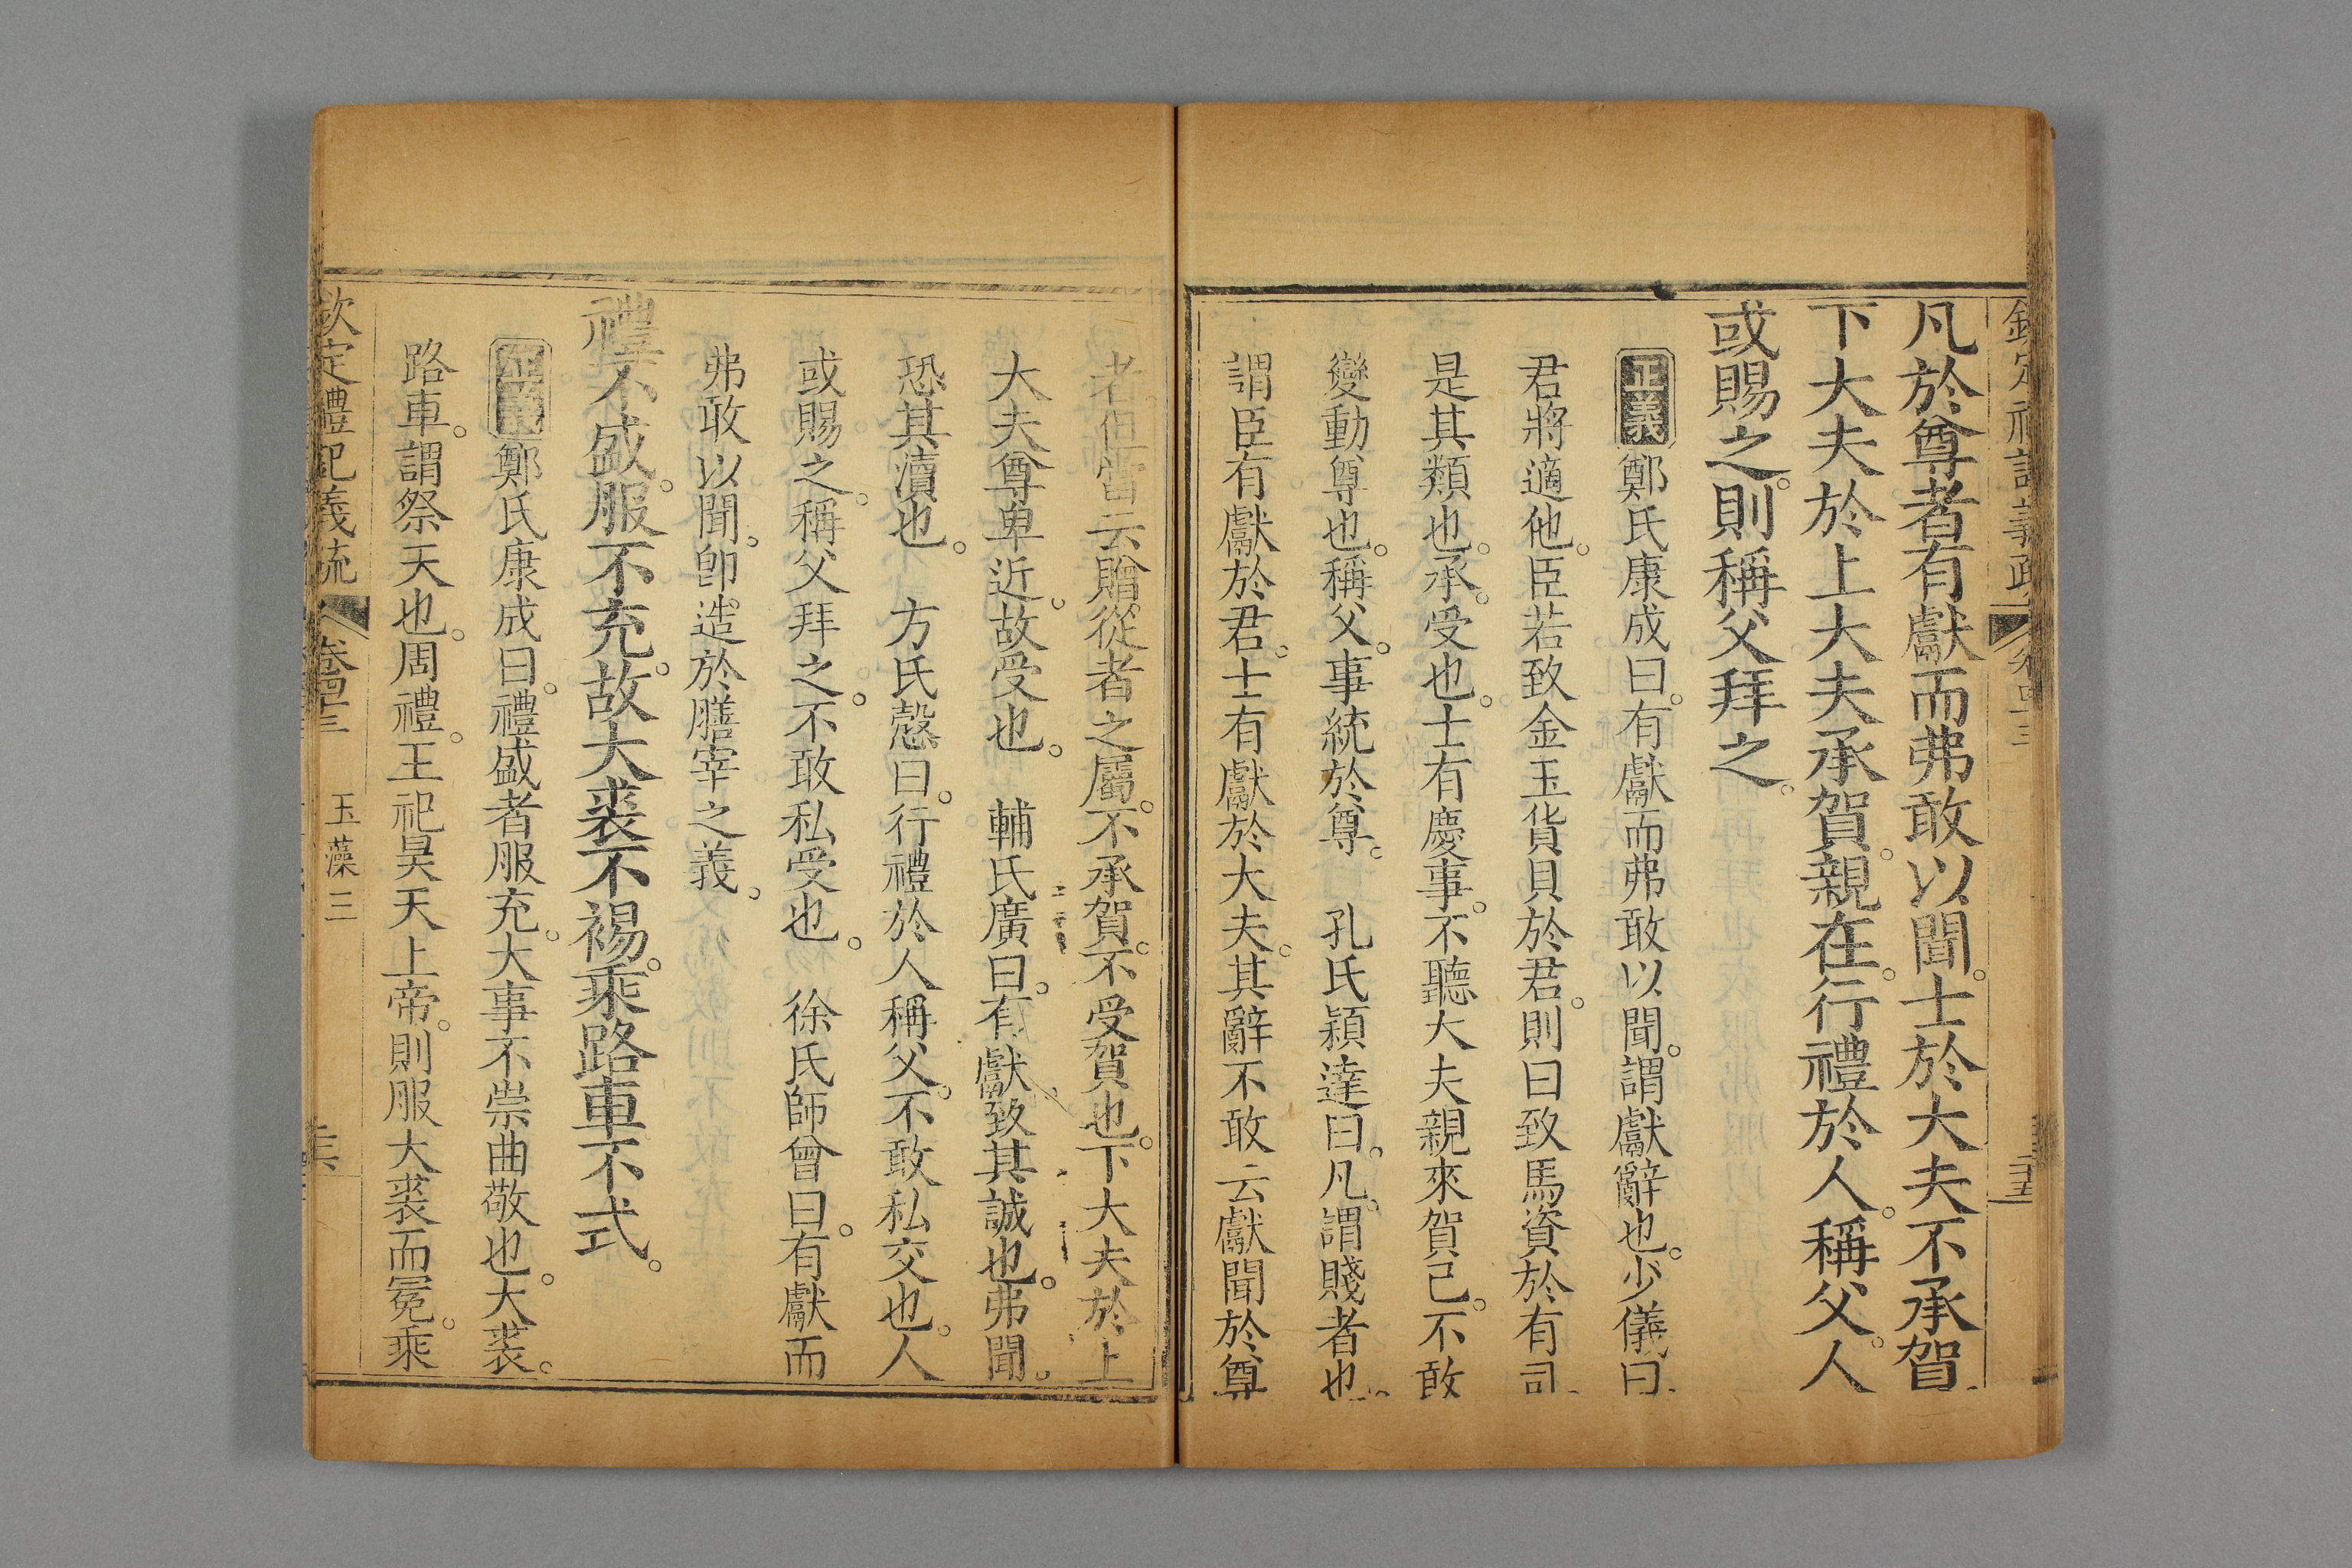 凡於尊者有獻而弗敢以聞。士於大夫不承賀。
下大夫於上大夫承賀。親在。行禮於人。稱父。人
或賜之。則稱父拜之。
正義鄭氏康成曰。有獻而弗敢以聞。謂獻辭也。少儀曰。
君將適他。臣若致金玉貨貝於君。則曰致馬資於有司。
是其類也。承。受也。士有慶事。不聽大夫親來賀己。不敢
變動尊也。稱父。事統於尊。　孔氏穎達曰。凡。謂賤者也。
謂臣有獻於君。士有獻於大夫。其辭不敢云獻聞於尊
者。但當云贈從者之屬。不承賀。不受賀也。下大夫於上
大夫尊卑近。故受也。　輔氏廣曰。有獻。致其誠也。弗聞。
恐其瀆也。　方氏慤曰。行禮於人稱父。不敢私交也。人
或賜之。稱父拜之。不敢私受也。　徐氏師曾曰。有獻而
弗敢以聞。卽造於膳宰之義。
禮不盛。服不充。故大裘不裼。乘路車不式。
正義鄭氏康成曰。禮盛者服充。大事不崇曲敬也。大裘。
路車。謂祭天也。周禮。王祀昊天上帝。則服大裘而冕。乘
欽定禮記義疏　卷四十三　玉藻三